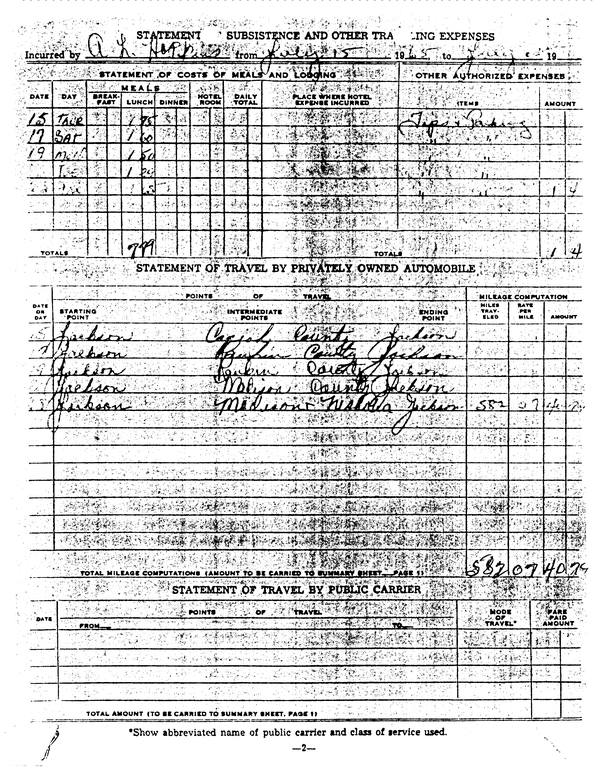 STATEMENT SUBSISTENCE AND OTHER TRA LING EXPENSES
Incurred by A. L. Hopkins from July 15 1965 to July 19
STATEMENT OF COSTS OF MEALS AND LODGING OTHER AUTHORIZED EXPENSES
MEALS
DATE DAY BREAK-FAST LUNCH DINNER HOTEL ROOM DAILY TOTAL PLACE WHERE HOTEL EXPENSE INCURRED ITEMS AMOUNT
15 THUR 1 75 Tips & Parking
17 SAT 1 60 " "
19 MON 1 50 " "
1 " "
" 1 4
TOTALS 7 99 TOTALS 1 4
STATEMENT OF TRAVEL BY PRIVATELY OWNED AUTOMOBILE
POINTS OF TRAVEL MILEAGE COMPUTATION
DATE OR DAY STARTING POINT INTERMEDIATE POINTS ENDING POINT MILES TRAV-ELED RATE PER MILE AMOUNT
Jackson Copiah County Jackson
Jackson County Jackson
Jackson Rankin County Jackson
Jackson Madison County Jackson
Jackson Madison & Neshoba Jackson 582 07 40 74
TOTAL MILEAGE COMPUTATIONS (AMOUNT TO BE CARRIED TO SUMMARY SHEET, PAGE 1) 582 07 40 74
STATEMENT OF TRAVEL BY PUBLIC CARRIER
DATE POINTS OF TRAVEL MODE OF TRAVEL* FARE PAID AMOUNT
FROM TO
TOTAL AMOUNT (TO BE CARRIED TO SUMMARY SHEET, PAGE 1)
*Show abbreviated name of public carrier and class of service used.
—2—